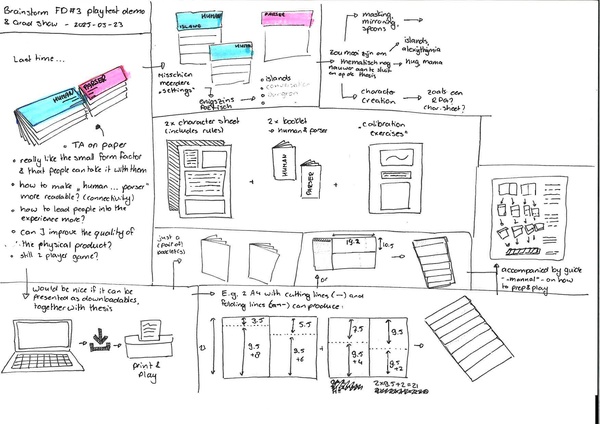 Brainstorm FD#3 playtest demo
& Grad Show - 2025-03-23
Last time ...
HUMAN
PARSER
→ TA on paper
• really like the small form factor
& that people can take it with them
• how to make "human ... parser"
more readable? (connectivity)
• how to lead people into the
experience more?
• can I improve the quality of
the physical product?
• still 2 player game?
HUMAN
ISLAND
HUMAN
PARSER
Misschien
meerdere
"settings"
enigszins
poëtisch
• islands
• conversation
• dungeon
zou mooi zijn om
thematisch nog
nauwer aan te sluiten
op de thesis
→ masking,
mirroring,
spoons
→ islands,
alexithymia
→ hug mama
→ character
creation
→ zoals een
RPG?
char. sheet?
2x character sheet
(includes rules)
+
2x booklet
→ human & parser
HUMAN
PARSER
+
"calibration
exercises"
just a
(pair of)
booklet(s)
or
19.2
10.5
accompanied by guide
"-manual-" on how
to prep & play
would be nice if it can be
presented as downloadables,
together with thesis
print &
play
E.g. 2 A4 with cutting lines (—) and
folding lines (---) can produce:
3.5
9.5
+8
5.5
9.5
+6
+
7.5
9.5
+4
9.5
9.5
+2
2x9.5+2=21